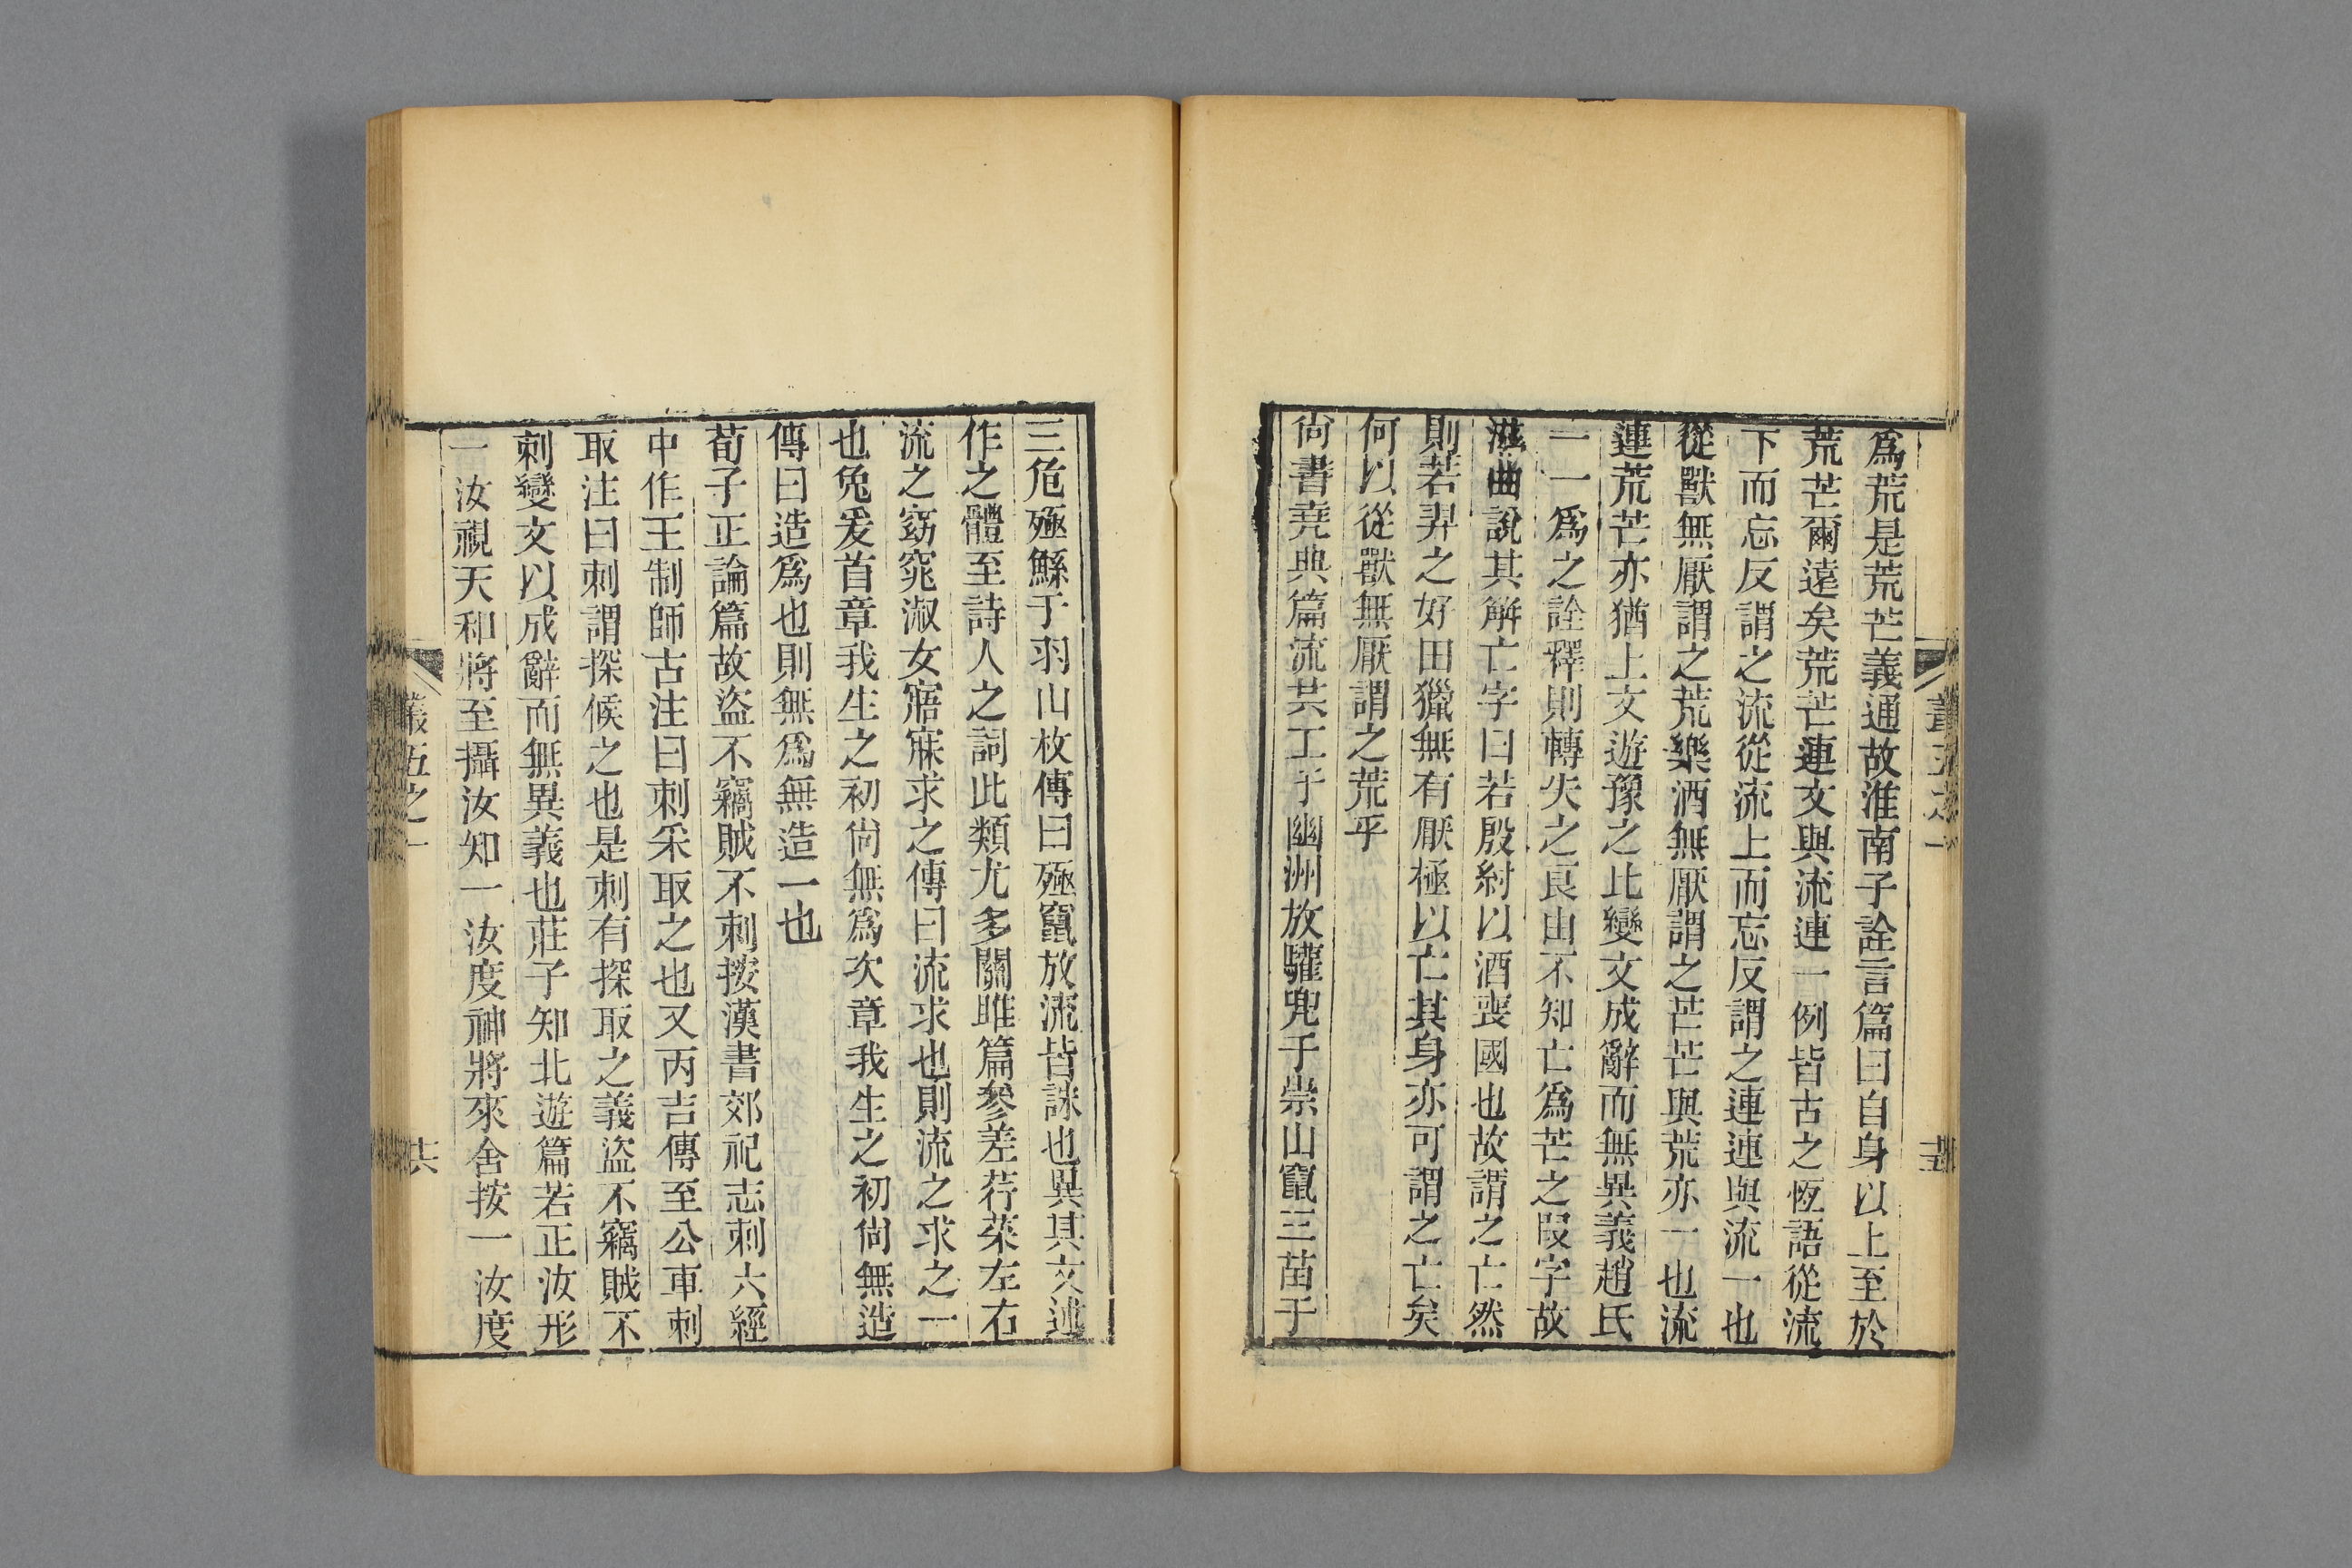 為荒是荒芒義通故淮南子詮言篇曰自身以上至於
荒芒爾遠矣荒芒連文與流連一例皆古之恆語從流
下而忘反謂之流從流上而忘反謂之連連與流一也
從獸無厭謂之荒樂酒無厭謂之芒芒與荒亦一也流
連荒芒亦猶上文遊豫之比變文成辭而無異義趙氏
一一爲之詮釋則轉失之良由不知亡爲芒之叚字故
滋曲說其解亡字曰若殷紂以酒喪國也故謂之亡然
則若羿之好田獵無有厭極以亡其身亦可謂之亡矣
何以從獸無厭謂之荒乎
尙書堯典篇流共工于幽洲放驩兜于崇山竄三苗于
三危殛鯀于羽山枚傳曰殛竄放流皆誅也異其文述
作之體至詩人之詞此類尤多關雎篇參差荇菜左右
流之窈窕淑女寤寐求之傳曰流求也則流之求之一
也兔爰首章我生之初尙無爲次章我生之初尙無造
傳曰造爲也則無爲無造一也
荀子正論篇故盜不竊賊不刺按漢書郊祀志刺六經
中作王制師古注曰刺采取之也又丙吉傳至公車刺
取注曰刺謂探候之也是刺有探取之義盜不竊賊不
刺變文以成辭而無異義也莊子知北遊篇若正汝形
一汝視天和將至攝汝知一汝度神將來舍按一汝度
叢五之一
共